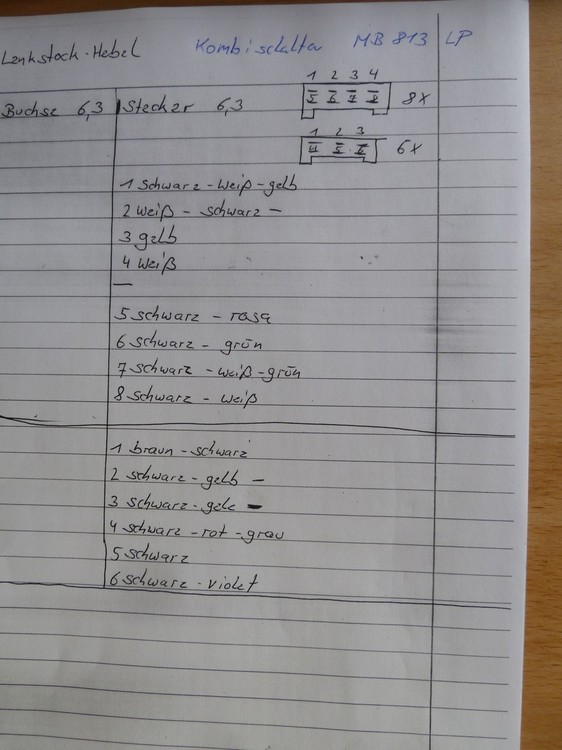 Lenkstock-Hebel Kombischalter MB 813 LP
1 2 3 4
Buchse 6,3 Stecker 6,3 5 6 7 8 8x
1 2 3
5 6 6x
1 schwarz-weiß-gelb
2 weiß - schwarz -
3 gelb
4 weiß
5 schwarz - rosa
6 schwarz - grün
7 schwarz - weiß-grün
8 schwarz - weiß
1 braun-schwarz
2 schwarz-gelb -
3 schwarz-gelb -
4 schwarz-rot-grau
5 schwarz
6 schwarz-violet